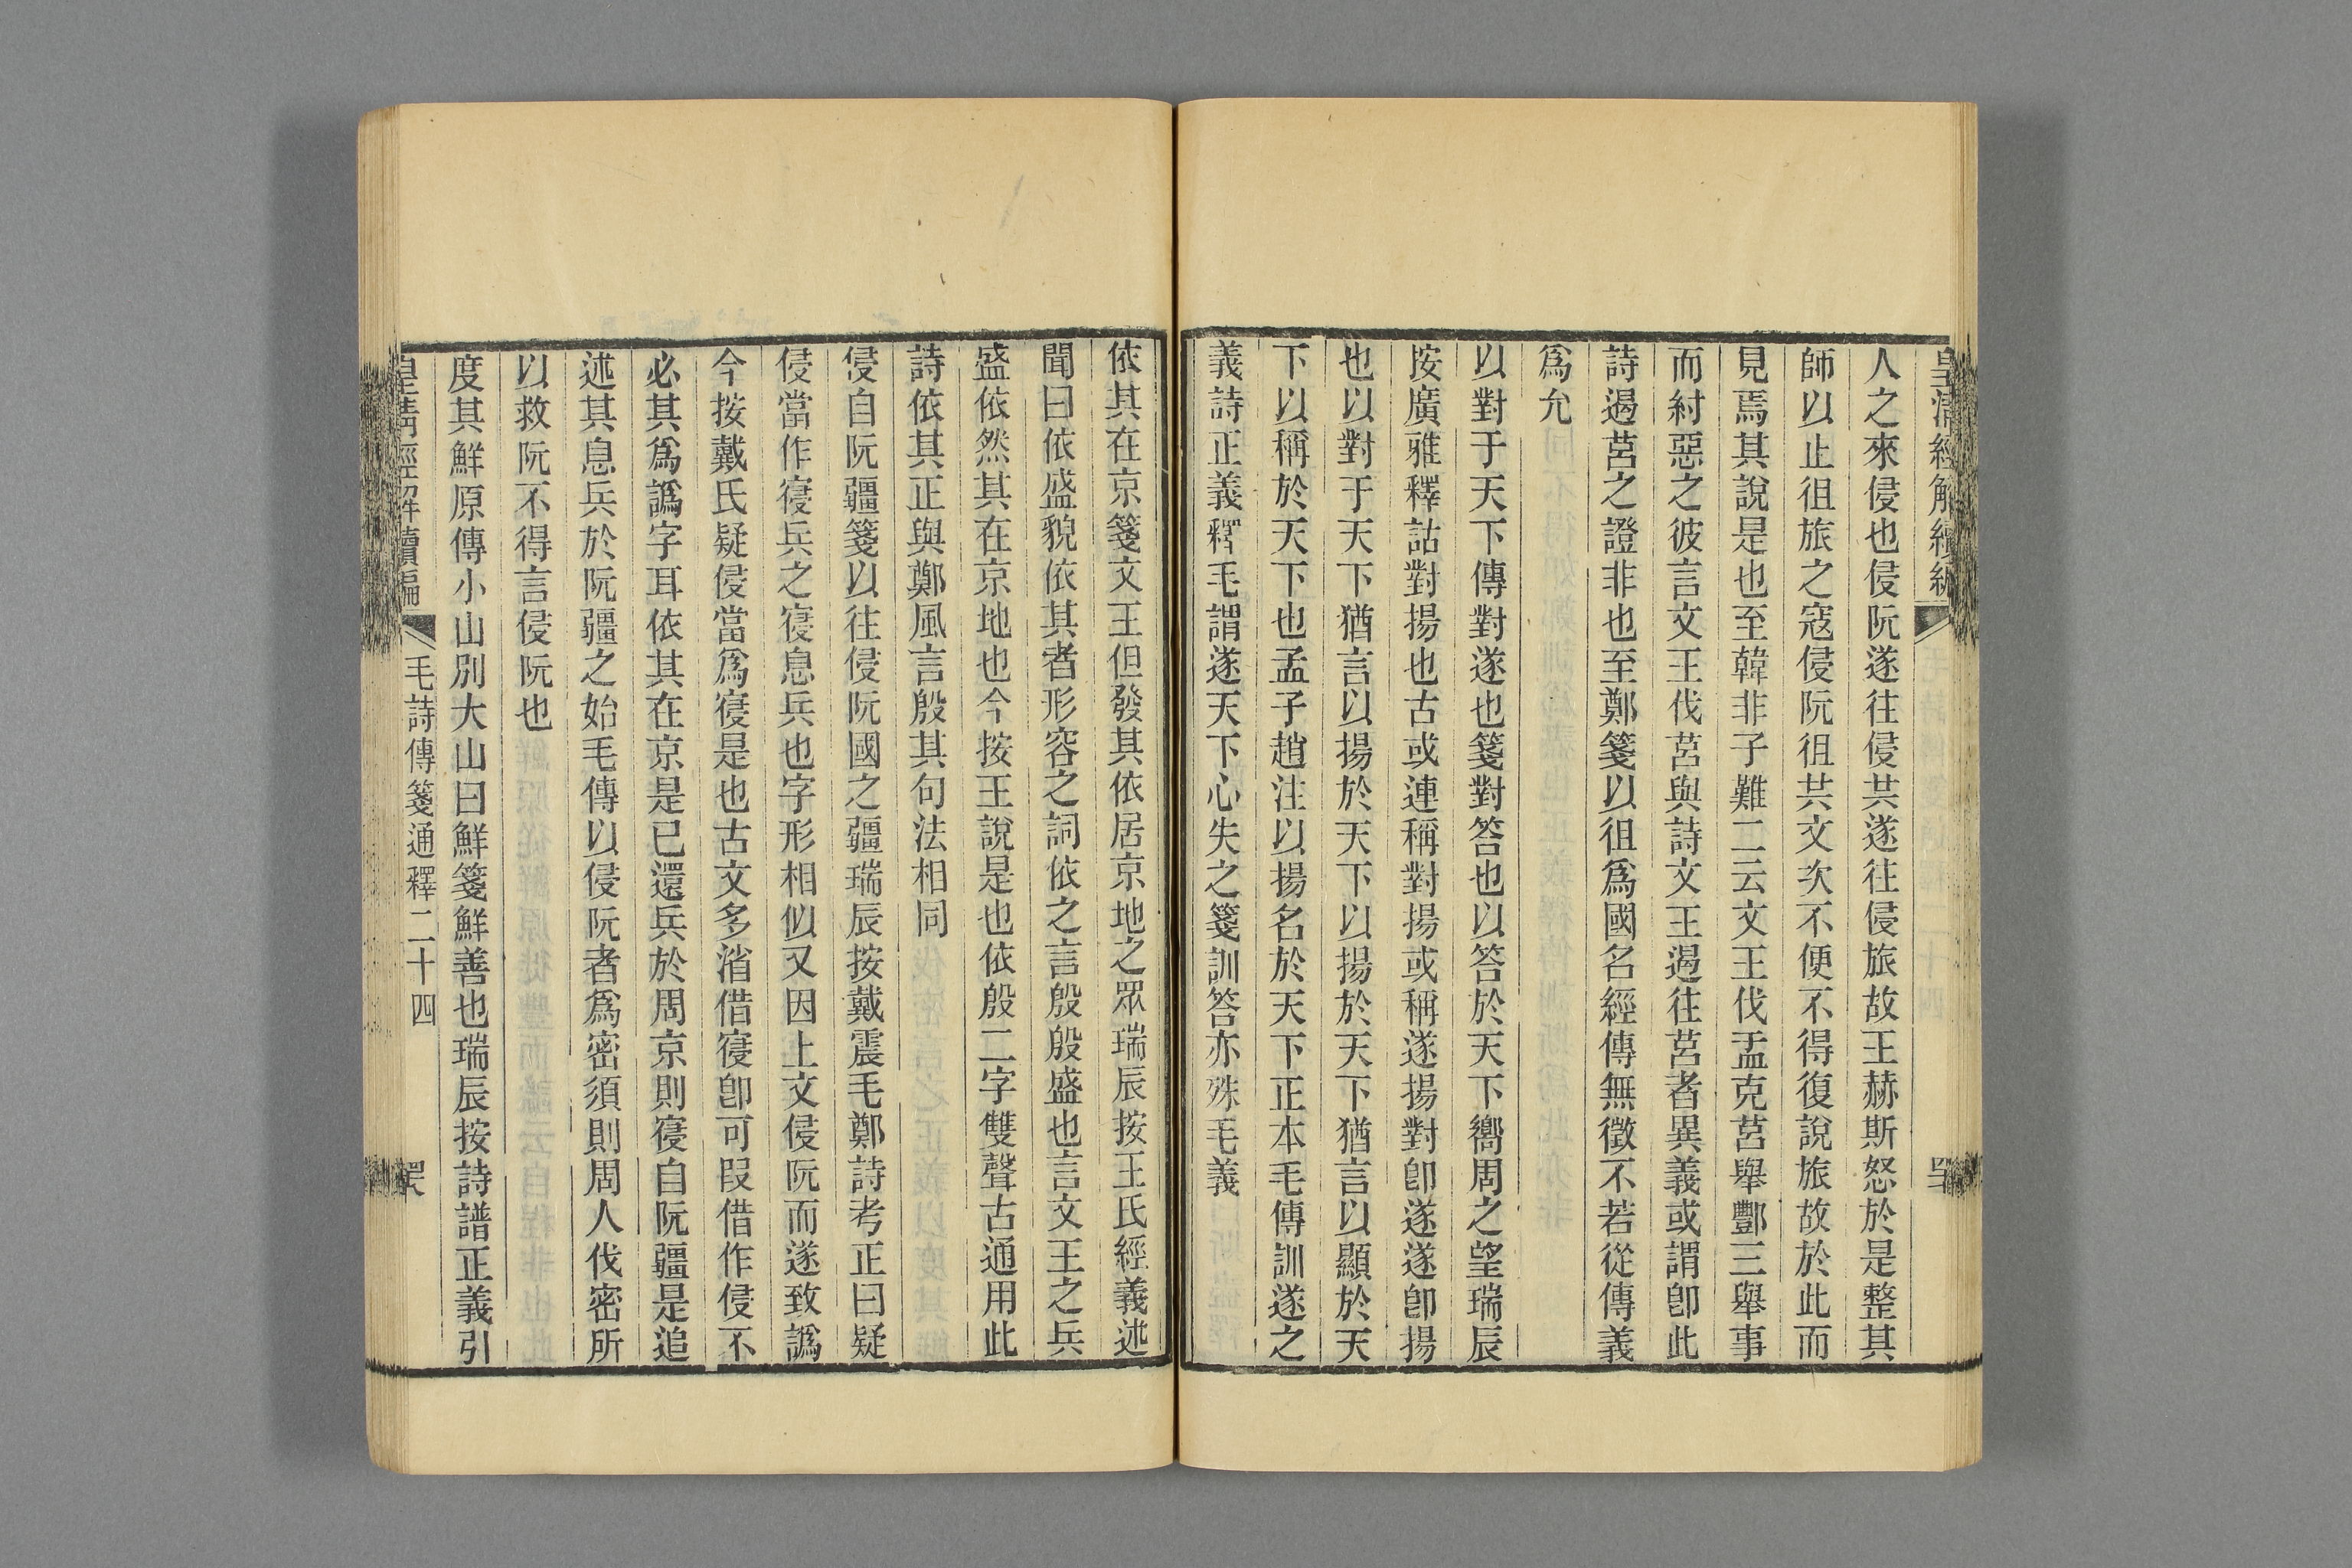 皇清經解續編
人之來侵也侵阮遂往侵共遂往侵旅故王赫斯怒於是整其
師以止徂旅之寇侵阮徂共文次不便不得復說旅故於此而
見焉其說是也至韓非子難二云文王伐盂克莒舉酆三舉事
而紂惡之彼言文王伐莒與詩文王遏往莒者異義或謂卽此
詩遏莒之證非也至鄭箋以徂爲國名經傳無徵不若從傳義
爲允
以對于天下傳對遂也箋對答也以答於天下嚮周之望瑞辰
按廣雅釋詁對揚也古或連稱對揚或稱遂揚對卽遂遂卽揚
也以對于天下猶言以揚於天下以揚於天下猶言以顯於天
下以稱於天下也孟子趙注以揚名於天下正本毛傳訓遂之
義詩正義釋毛謂遂天下心失之箋訓答亦殊毛義
依其在京箋文王但發其依居京地之眾瑞辰按王氏經義述
聞曰依盛貌依其者形容之詞依之言殷殷盛也言文王之兵
盛依然其在京地也今按王說是也依殷二字雙聲古通用此
詩依其正與鄭風言殷其句法相同
侵自阮疆箋以往侵阮國之疆瑞辰按戴震毛鄭詩考正曰疑
侵當作寑兵之寑息兵也字形相似又因上文侵阮而遂致譌
今按戴氏疑侵當爲寑是也古文多消借寑卽可叚借作侵不
必其爲譌字耳依其在京是已還兵於周京則寑自阮疆是追
述其息兵於阮疆之始毛傳以侵阮者爲密須則周人伐密所
以救阮不得言侵阮也
度其鮮原傳小山別大山曰鮮箋鮮善也瑞辰按詩譜正義引
皇清經解續編
毛詩傳箋通釋二十四